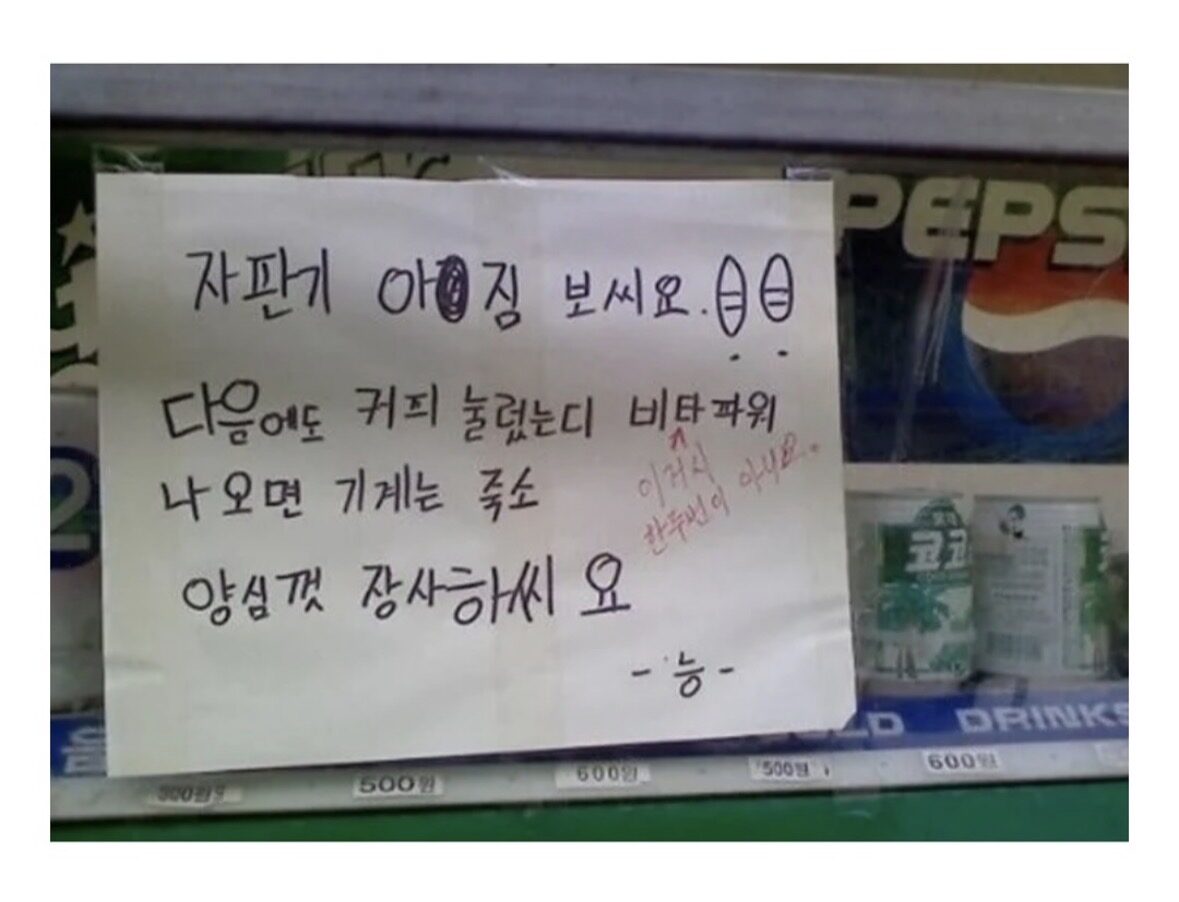 PEPS
자판기 아짐 보씨요.
다음에도 커피 눌렀는디 비타파워
이거시
한두번이 아니요.
나오면 기계는 죽소
양심껏 장사하씨요
-능-
2
코코
DRINKS
300원
500원
600원
500원
600원